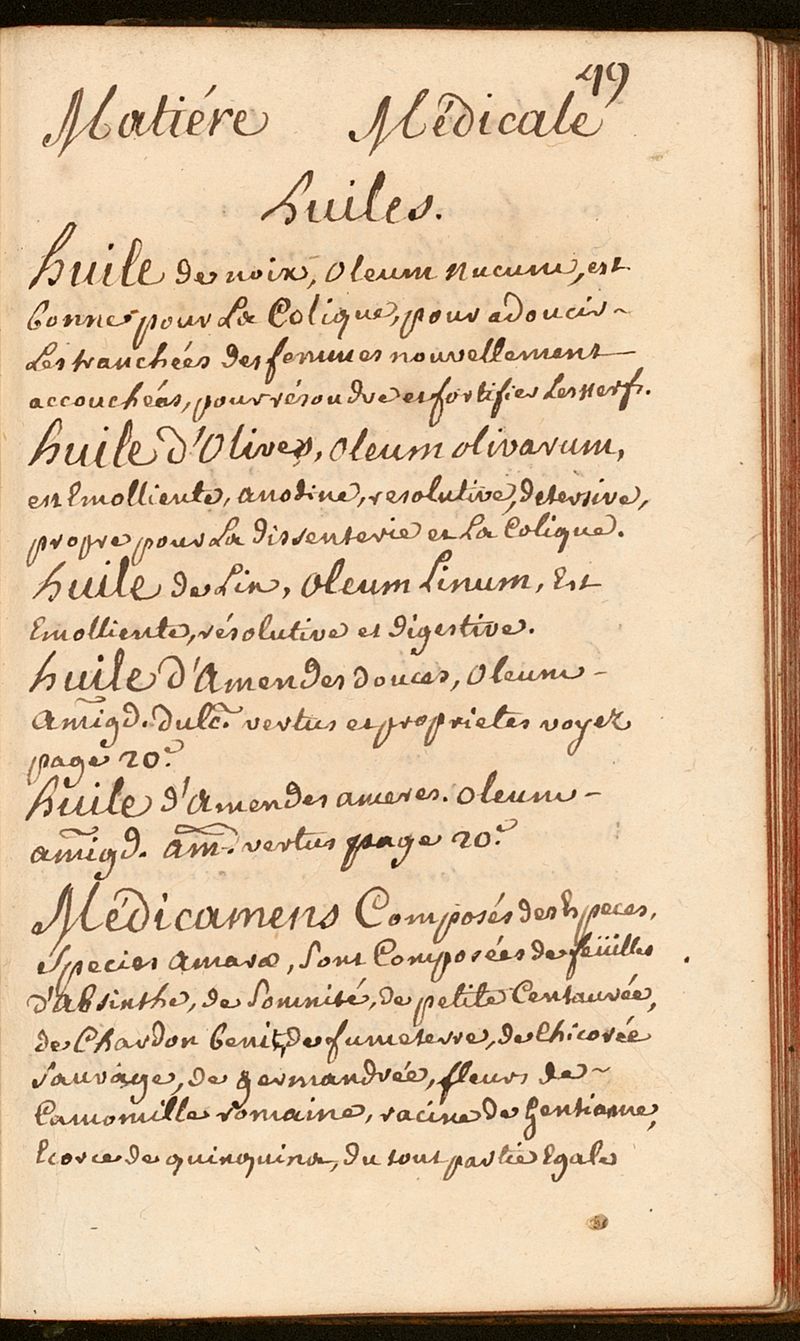 49
Matiére Médicale
huiles.
huile de noix, oleum nucum, est
bonne pour La Colique, pour adoucir
Les tranchées des femmes nouvellement
accouchéés, pour résoudre et fortifier Les nerfs.
huile d'Olives, oleum olivarum,
est Emolliente, anodine, resolutive, detersive,
propre pour La dissenterie et La Colique.
huile de Lin, oleum Linum, Est
Emolliente, résolutive et digestive.
huile d'Amendes douces, oleum
amigd. dulc. vertus et proprietes voyez
page 20.e
huile d'amendes ameres. oleum
amigd. am. vertus page 20.e
Médicamens Composés des Especes,
Species amaræ, sont Composées de feüilles
d'absinthe, de Somnité, de petite Centaurée,
de Chardon benit, de fumeterre, de Chicorée
Sauvage, de germandrée, fleurs de
Camomille romaine, racine de gentiane,
Ecorce de quinquina, du tout partie Egale